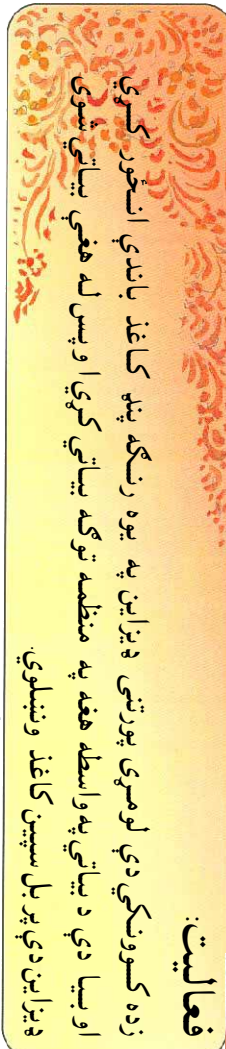 فعاليت:
زده کوونکي دې لومړی پورتنی ډيزاين په يوه رنګه پنډ کاغذ باندې انځور کړي
او بيا دې د بياتي په واسطه هغه په منظمه توګه بياتي کړي او پس له هغې بياتي شوی
ډيزاين دې پر بل سپين کاغذ ونښلوي.